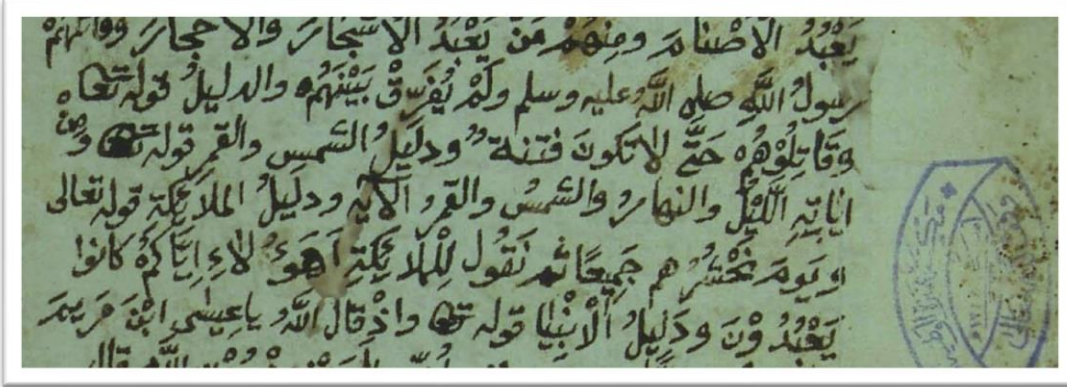 يَعْبُدُ الْأَصْنَامَ ومِنْهُمْ مَنْ يَعْبُدُ الْأَشْجَارَ والأحْجَارَ وقاتلهم
رسولُ اللَّهِ صلى اللَّهُ عليه وسلم ولَمْ يُفَرِّقْ بَيْنَهُم والدليلُ قوله تعا
وَقَاتِلُوْهُمْ حَتَّى لَا تَكُونَ فتنة ودليلُ الشمسِ والقمرِ قوله تعا ومِنْ
اياتِهِ اللَّيْلُ والنهارُ والشمسُ والقمرُ الآية ودليلُ الملائِكَة قوله تعالى
ويَومَ نَحْشُرُهم جَمِيعًا ثم نَقُولُ لِلْمَلَائِكَةِ أَهَؤُلَاءِ إيَّاكُمْ كانوا
يَعْبُدُوْنَ ودَلِيلُ الْأَنْبِيَا قوله تعا واذْ قال اللَّهُ ياعِيسَى ابْنَ مَرْيمَ